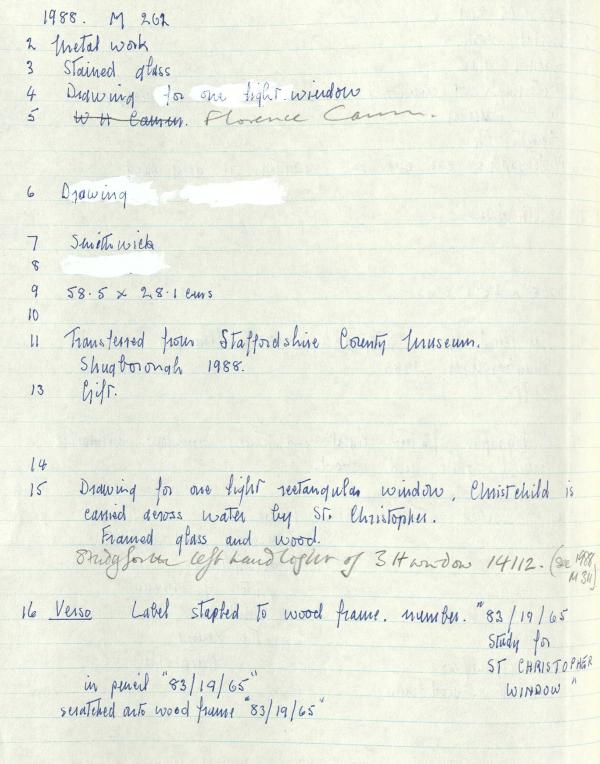 1988. M 262
2 Metal work
3 Stained glass
4 Drawing for one light window
5 W H Camm. Florence Camm.
6 Drawing
7 Smethwick
8
9 58.5 x 28.1 cms
10
11 Transferred from Staffordshire County Museum.
Shugborough 1988.
13 Gift.
14
15 Drawing for one light rectangular window. Christchild is
carried across water by St. Christopher.
Framed glass and wood.
Study for the left hand light of 3 lt window 14112. (see 1988
M 311)
16 Verso Label stapled to wood frame. number. "83/19/65
Study for
ST CHRISTOPHER
WINDOW"
in pencil "83/19/65"
scratched onto wood frame "83/19/65"